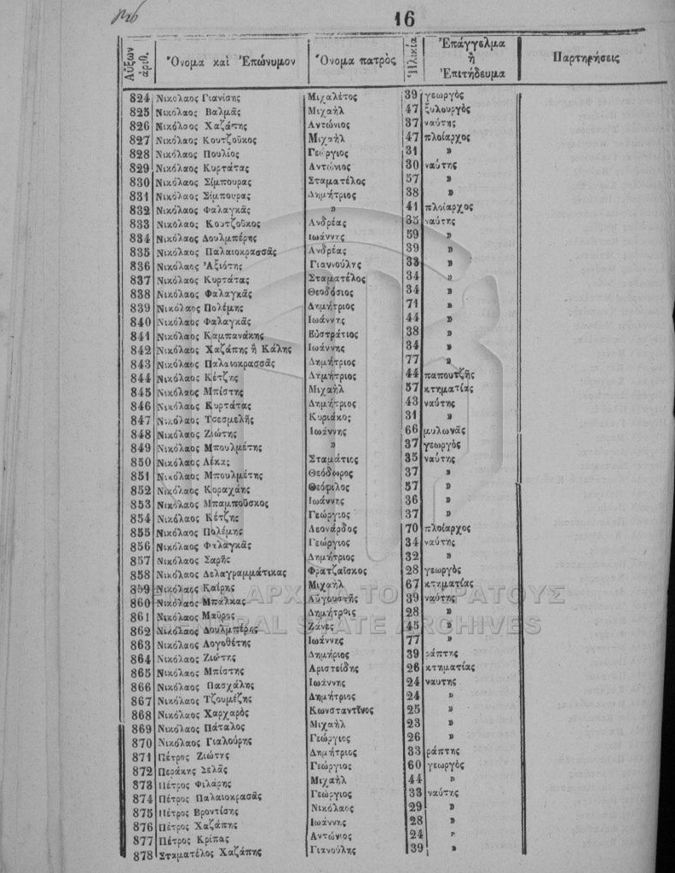 16
Αὔξων ἀριθ. Ὄνομα καὶ Ἐπώνυμον Ὄνομα πατρὸς Ἡλικία Ἐπάγγελμα ἢ Ἐπιτήδευμα Παρτηρήσεις
824 Νικόλαος Γιανίσης Μιχαλέτος 39 γεωργὸς
825 Νικόλαος Βαλμᾶς Μιχαὴλ 47 ξυλουργὸς
826 Νικόλαος Χαζάπης Αντώνιος 37 ναύτης
827 Νικόλαος Κουτζοῦκος Μιχαὴλ 47 πλοίαρχος
828 Νικόλαος Πουλίος Γεώργιος 31 »
829 Νικόλαος Κυρτάτας Αντώνιος 30 ναύτης
830 Νικόλαος Σίμπουρας Σταματέλος 57 »
831 Νικόλαος Σίμπουρας Δημήτριος 38 »
832 Νικόλαος Φαλαγκᾶς » 41 πλοίαρχος
833 Νικόλαος Κουτζοῦκος Ανδρέας 35 ναύτης
834 Νικόλαος Δουλμπέρης Ιωάννης 59 »
835 Νικόλαος Παλαιοκρασσᾶς Ανδρέας 39 »
836 Νικόλαος Ἀξιότης Γιαννούλης 33 »
837 Νικόλαος Κυρτάτας Σταματέλος 34 »
838 Νικόλαος Φαλαγκᾶς Θεοδόσιος 34 »
839 Νικόλαος Πολέμης Δημήτριος 71 »
840 Νικόλαος Φαλαγκᾶς Ιωάννης 44 »
841 Νικόλαος Καμπανάκης Εὐστράτιος 38 »
842 Νικόλαος Χαζάπης ἢ Κάλης Ιωάννης 34 »
843 Νικόλαος Παλαιοκρασσᾶς Δημήτριος 77 »
844 Νικόλαος Κέτζης Δημήτριος 44 παπουτζῆς
845 Νικόλαος Μπίστης Μιχαὴλ 57 κτηματίας
846 Νικόλαος Κυρτάτας Δημήτριος 43 ναύτης
847 Νικόλαος Τσεσμελῆς Κυριάκος 31 »
848 Νικόλαος Ζιώτης Ιωάννης 66 μυλωνᾶς
849 Νικόλαος Μπουλμέτης » 37 γεωργὸς
850 Νικόλαος Λέκας Σταμάτιος 35 ναύτης
851 Νικόλαος Μπουλμέτης Θεόδωρος 37 »
852 Νικόλαος Κοραχάης Θεόφιλος 57 »
853 Νικόλαος Μπαμποῦσκος Ιωάννης 36 »
854 Νικόλαος Κέτζης Γεώργιος 37 »
855 Νικόλαος Πολέμης Λεονάρδος 70 πλοίαρχος
856 Νικόλαος Φαλαγκᾶς Γεώργιος 34 ναύτης
857 Νικόλαος Σαρῆς Δημήτριος 32 »
858 Νικόλαος Δελαγραμμάτικας Φρατζαῖσκος 28 γεωργὸς
859 Νικόλαος Καίρης Μιχαὴλ 67 κτηματίας
860 Νικόλαος Μπάλκας Αὐγουστῆς 39 ναύτης
861 Νικόλαος Μαῦρος Δημήτριος 28 »
862 Νικόλαος Δουλμπέρος Ζάνες 45 »
863 Νικόλαος Λογοθέτης Ιωάννης 77 »
864 Νικόλαος Ζιώτης Δημήριος 39 ράπτης
865 Νικόλαος Μπίστης Αριστείδης 26 κτηματίας
866 Νικόλαος Πασχάλης Ιωάννης 24 ναυτης
867 Νικόλαος Τζουμέζης Δημήτριος 24 »
868 Νικόλαος Χαρχαρὸς Κωνσταντῖνος 25 »
869 Νικόλαος Πάταλος Μιχαὴλ 23 »
870 Νικόλαος Γιαλούρης Γεώργιος 26 »
871 Πέτρος Ζιώτης Δημήτριος 33 ράπτης
872 Περάκης Δελᾶς Γεώργιος 60 γεωργὸς
873 Πέτρος Φιλάρης Μιχαὴλ 44 »
874 Πέτρος Παλαιοκρασᾶς Γεώργιος 33 ναύτης
875 Πέτρος Βροντίσης Νικόλαος 29 »
876 Πέτρος Χαζάπης Ιωάννης 28 »
877 Πέτρος Κρίπας Αντώνιος 24 »
878 Σταματέλος Χαζάπης Γιανούλης 39 »
ΑΡΧΕΙΑ ΤΟΥ ΚΡΑΤΟΥΣ
GENERAL STATE ARCHIVES